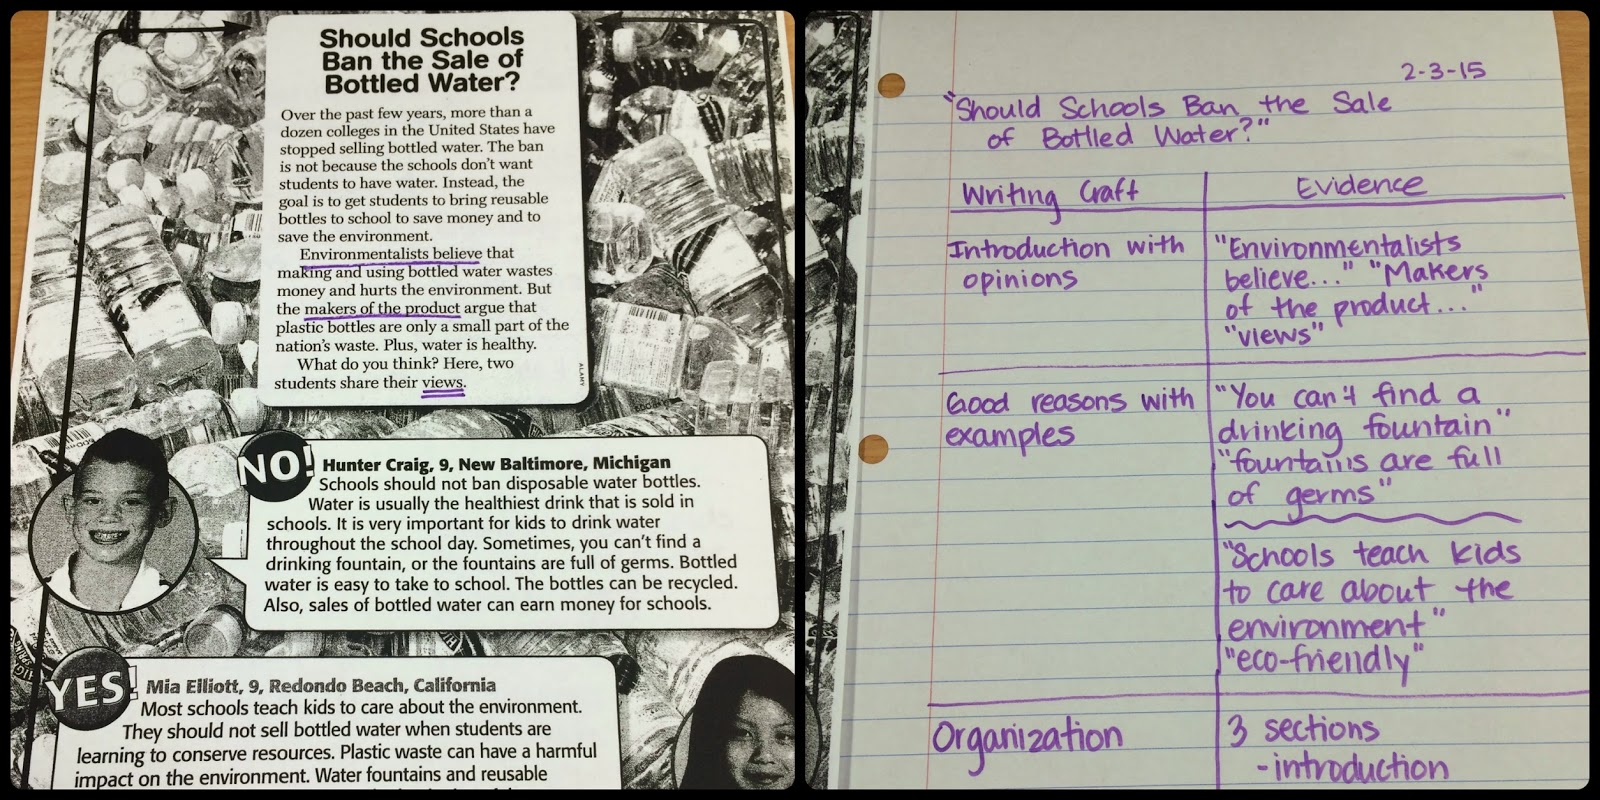 Should Schools
Ban the Sale of
Bottled Water?
Over the past few years, more than a
dozen colleges in the United States have
stopped selling bottled water. The ban
is not because the schools don't want
students to have water. Instead, the
goal is to get students to bring reusable
bottles to school to save money and to
save the environment.
Environmentalists believe that
making and using bottled water wastes
money and hurts the environment. But
the makers of the product argue that
plastic bottles are only a small part of the
nation's waste. Plus, water is healthy.
What do you think? Here, two
students share their views.
ALAMY
NO!
Hunter Craig, 9, New Baltimore, Michigan
Schools should not ban disposable water bottles.
Water is usually the healthiest drink that is sold in
schools. It is very important for kids to drink water
throughout the school day. Sometimes, you can't find a
drinking fountain, or the fountains are full of germs. Bottled
water is easy to take to school. The bottles can be recycled.
Also, sales of bottled water can earn money for schools.
YES!
Mia Elliott, 9, Redondo Beach, California
Most schools teach kids to care about the environment.
They should not sell bottled water when students are
learning to conserve resources. Plastic waste can have a harmful
impact on the environment. Water fountains and reusable
2-3-15
"Should Schools Ban the Sale
of Bottled Water?"
Writing Craft
Evidence
Introduction with
opinions
"Environmentalists
believe..." "Makers
of the product..."
"views"
Good reasons with
examples
"You can't find a
drinking fountain"
"fountains are full
of germs"
"Schools teach kids
to care about the
environment"
"eco-friendly"
Organization
3 sections
-introduction